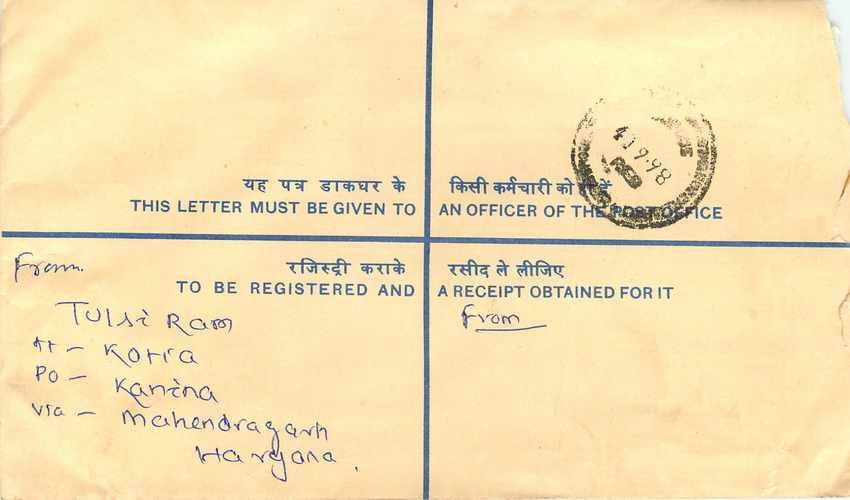 यह पत्र डाकघर के किसी कर्मचारी को
THIS LETTER MUST BE GIVEN TO AN OFFICER OF THE POST OFFICE
9.98
रजिस्ट्री कराके रसीद ले लीजिए
TO BE REGISTERED AND A RECEIPT OBTAINED FOR IT
From.
Tulsi Ram
At - Kotia
PO - Kanina
via - Mahendragarh
Haryana.
From